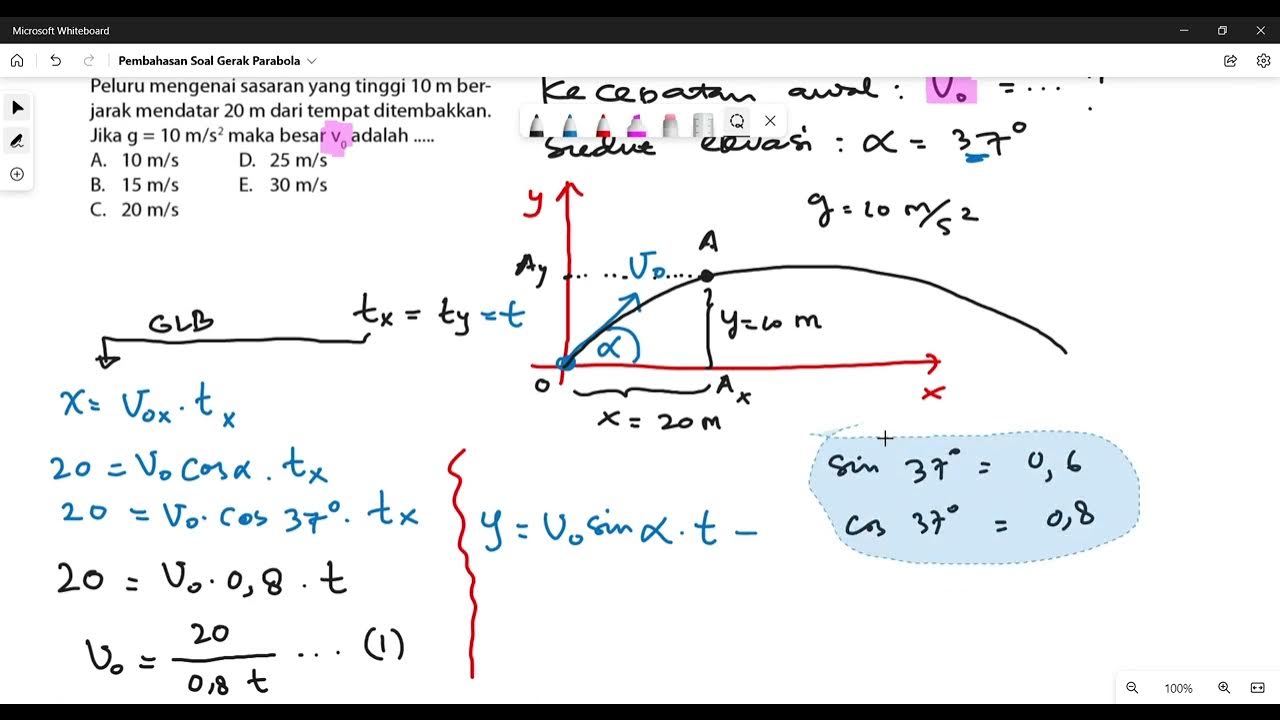 Microsoft Whiteboard
Pembahasan Soal Gerak Parabola
Peluru mengenai sasaran yang tinggi 10 m ber-
jarak mendatar 20 m dari tempat ditembakkan.
Jika g = 10 m/s² maka besar v₀ adalah .....
A. 10 m/s D. 25 m/s
B. 15 m/s E. 30 m/s
C. 20 m/s
Kecepatan awal : V₀ = ...
: α = 37°
g = 10 m/s²
y
A
Ay
V₀
α
y = 10 m
O
Ax
x
x = 20 m
GLB
tx = ty = t
x = V₀x . tx
20 = V₀ cos α . tx
20 = V₀ . cos 37° . tx
20 = V₀ . 0,8 . t
V₀ = 20 / 0,8 t ... (1)
y = V₀ sin α . t –
sin 37° = 0,6
cos 37° = 0,8
100%